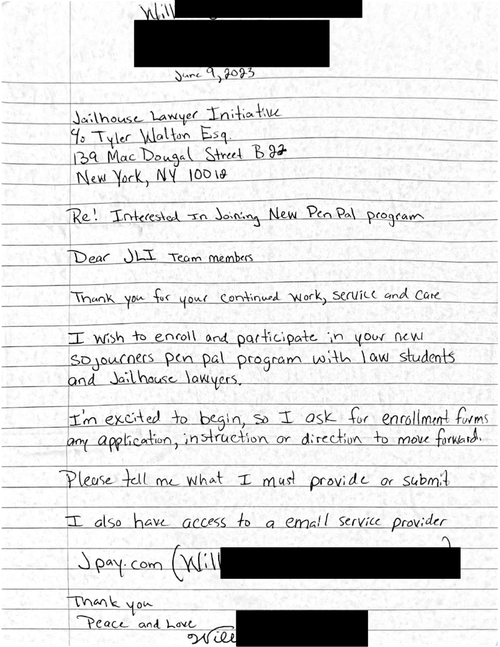 Will
June 9, 2023
Jailhouse Lawyer Initiative
℅ Tyler Walton Esq.
139 Mac Dougal Street B22
New York, NY 10012
Re: Interested In Joining New Pen Pal program
Dear JLI Team members
Thank you for your continued work, service and care
I wish to enroll and participate in your new
sojourners pen pal program with law students
and Jailhouse lawyers.
I'm excited to begin, so I ask for enrollment forms
any application, instruction or direction to move forward.
Please tell me what I must provide or submit
I also have access to a email service provider
Jpay.com (Will )
Thank you
Peace and Love
Will